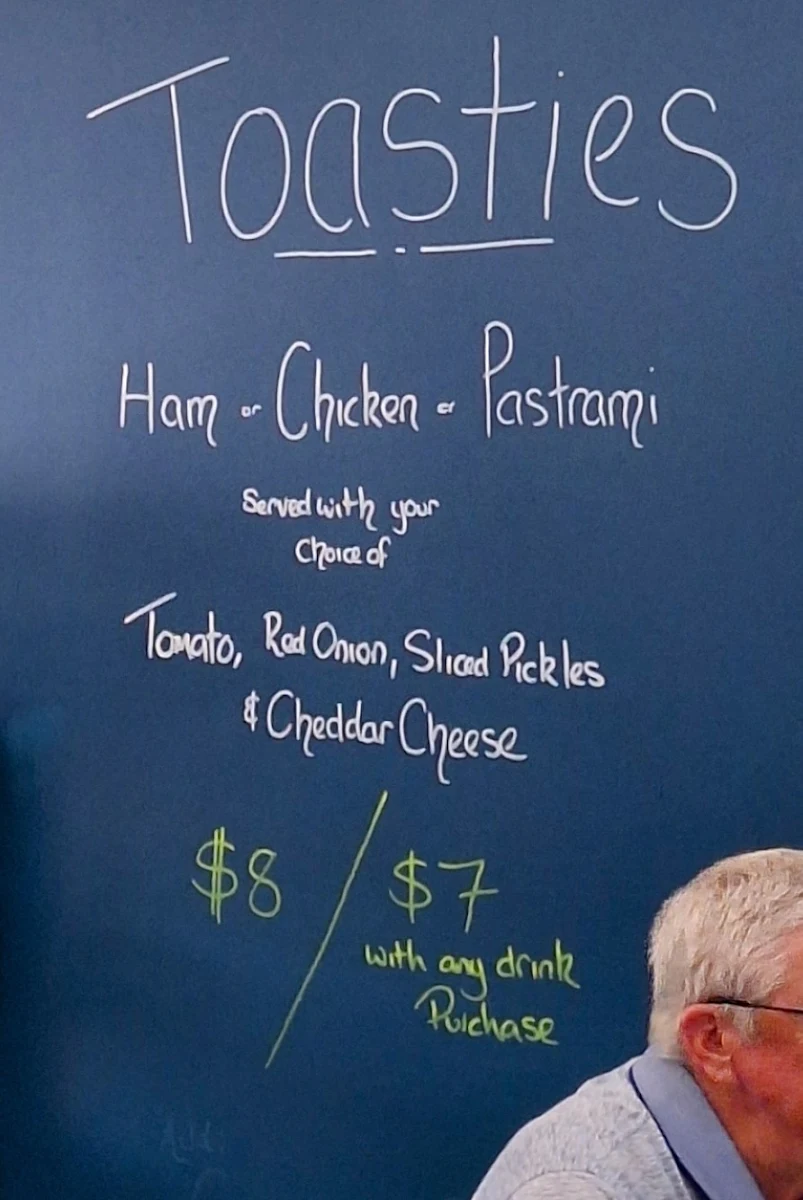 Toasties
Ham or Chicken or Pastrami
Served with your
Choice of
Tomato, Red Onion, Sliced Pickles
& Cheddar Cheese
$8 / $7
with any drink
Purchase